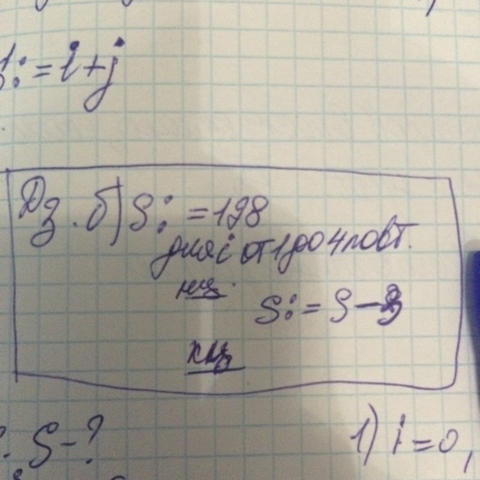 S:=i+j
Дз. б) S:=198
для i от 1 до 4 повт.
нц
S:=S-3
кц
S-?
1) i=0,